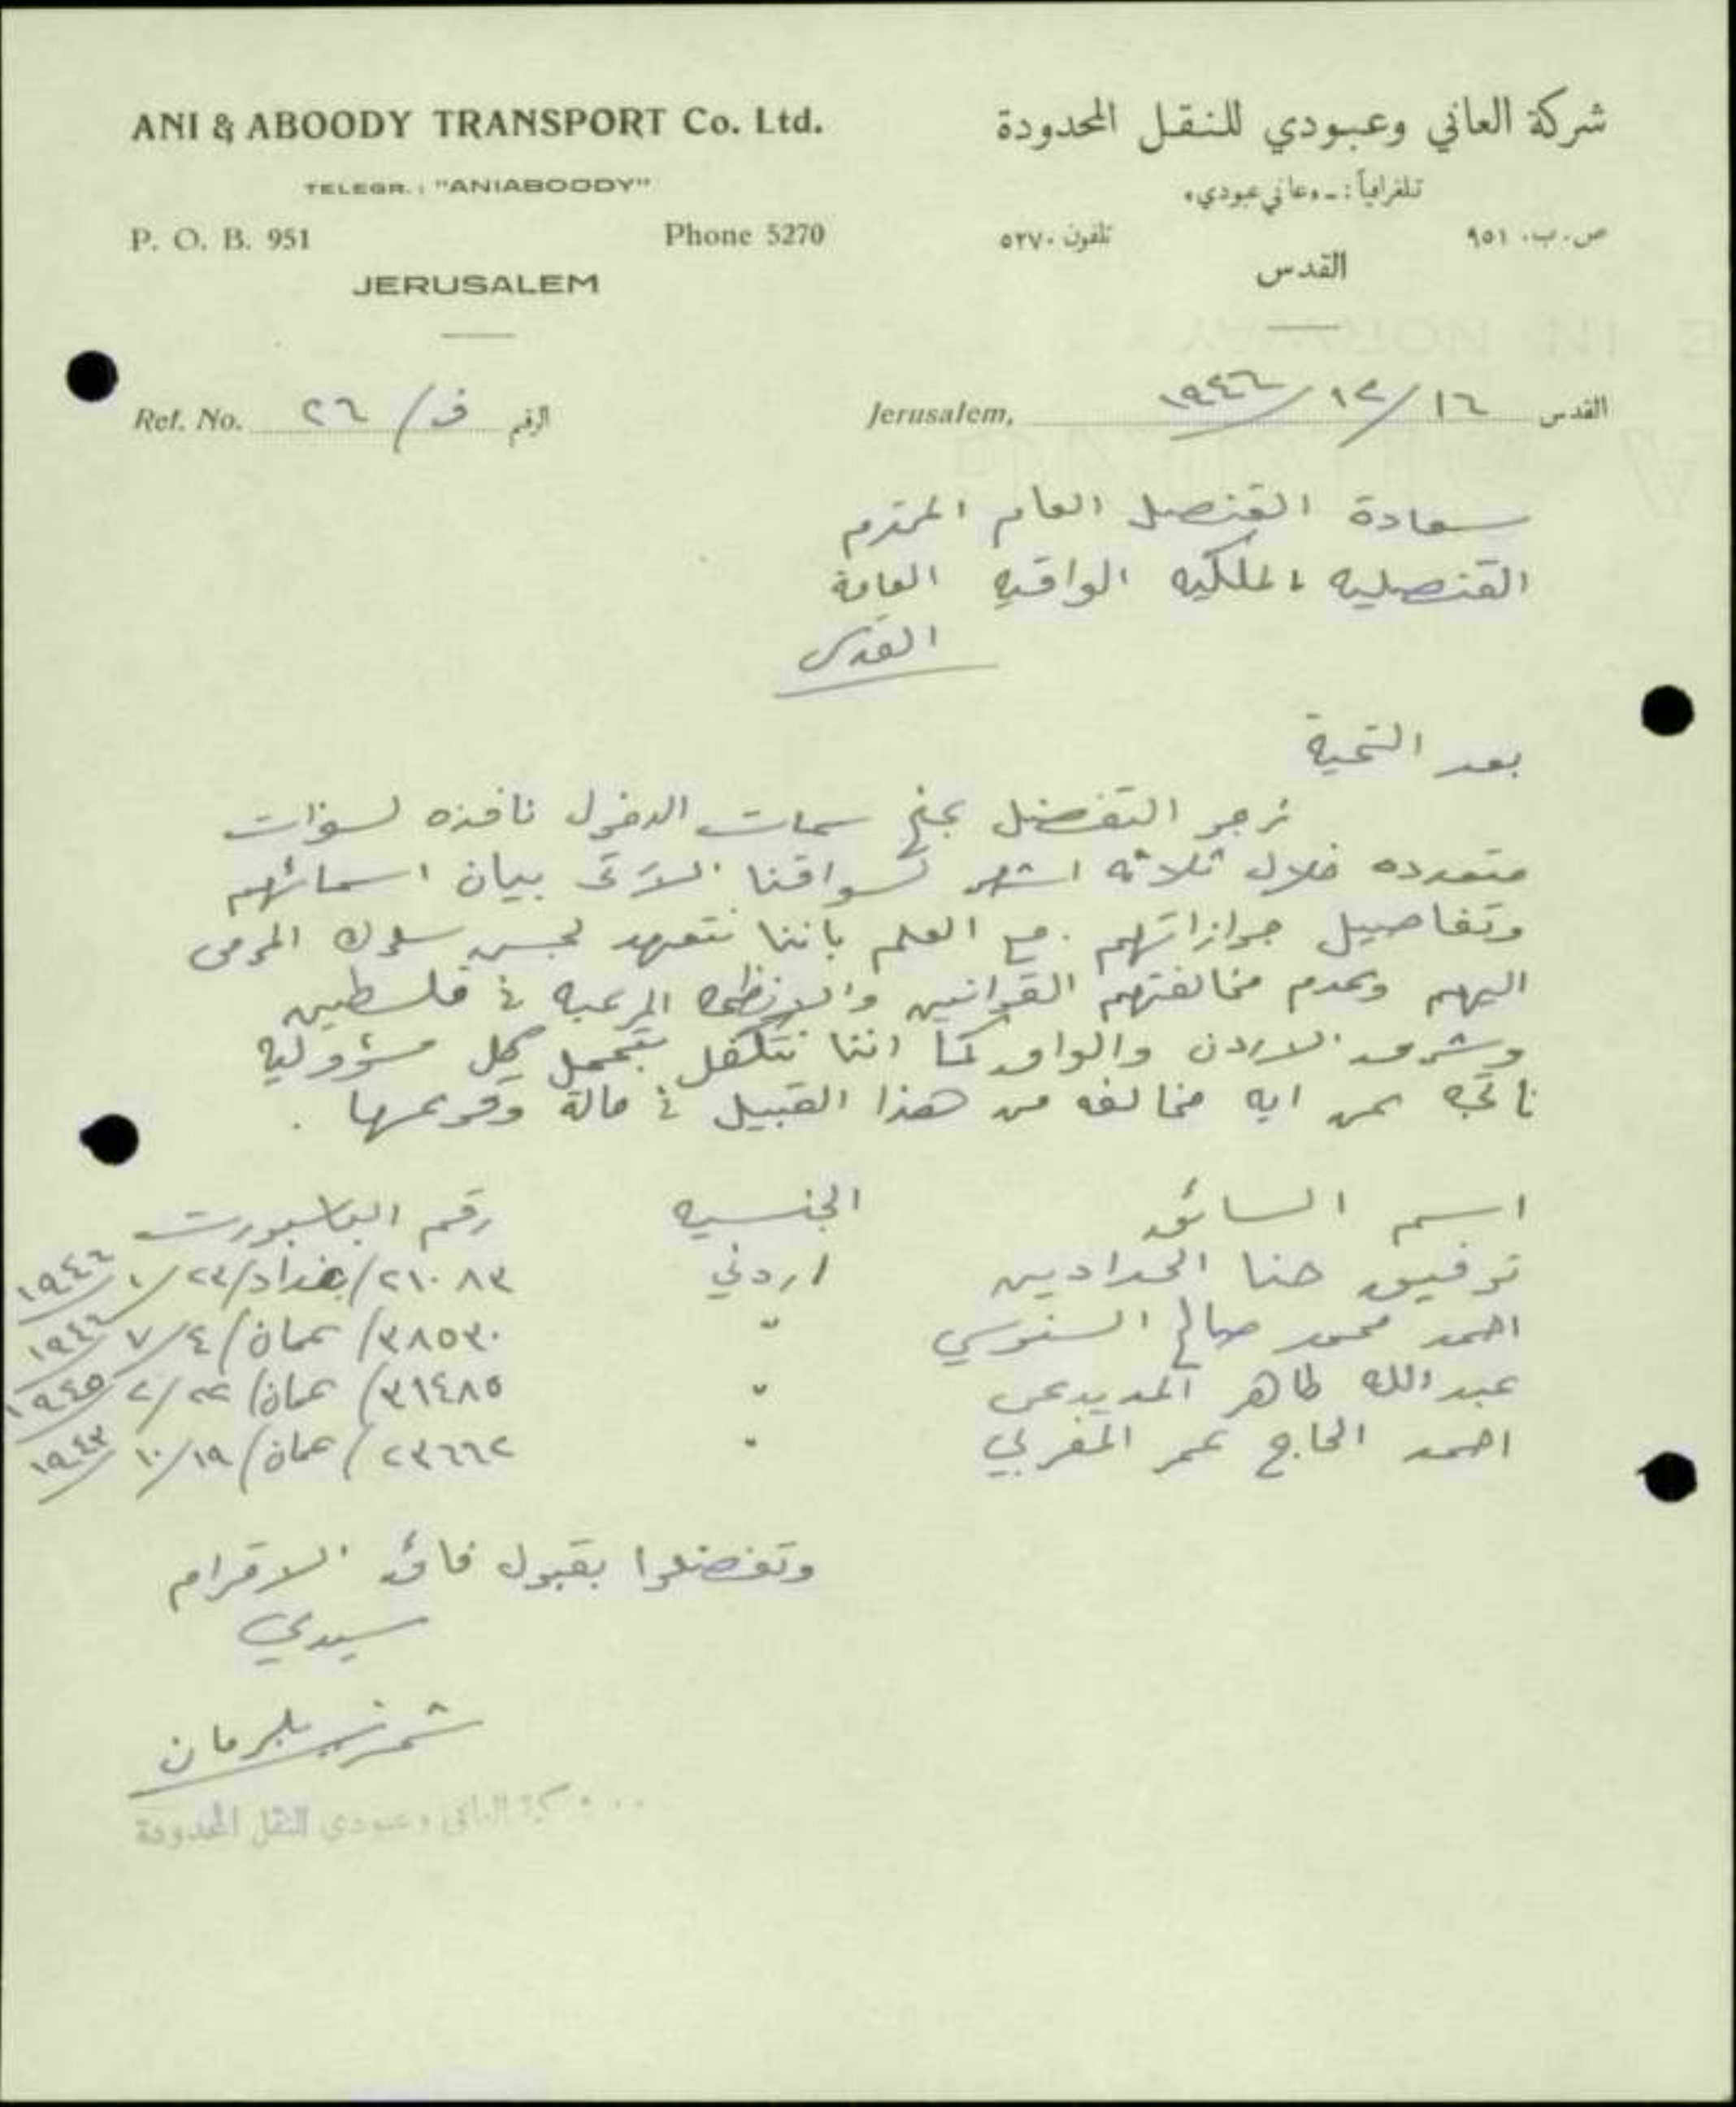 ANI & ABOODY TRANSPORT Co. Ltd.
TELEGR. : "ANIABOODY"
P. O. B. 951 Phone 5270
JERUSALEM
شركة العاني وعبودي للنقل المحدودة
تلغرافياً :ـ «عاني عبودي»
ص. ب. ٩٥١ تلفون ٥٢٧٠
القدس
Ref. No. ف / ٢٦ الرقم
Jerusalem, ١٦ / ١٢ / ١٩٤٦ القدس
سعادة القنصل العام المحترم
القنصليه الملكيه العراقيه العامة
القدس
بعد التحية
نرجو التفضل بمنح سمات الدخول نافذه لسفرات
متعدده خلال ثلاثة اشهر لسواقنا الآتى بيان اسمائهم
وتفاصيل جوازاتهم . مع العلم باننا نتعهد لحسن سلوك المومى
اليهم وعدم مخالفتهم القوانين والانظمه المرعيه في فلسطين
وشرق الاردن والعراق كما اننا نتكفل بتحمل كل مسؤولية
ناتجه عن ايه مخالفه من هذا القبيل في حالة وقوعها .
اسم السائق الجنسيه رقم الباسبورت
توفيق حنا الحدادين اردني ٢١٠٨٣ / بغداد / ٢٣ / ١ / ١٩٤٦
احمد محمد صالح السنوسي " ٣٨٥٣٠ / عمان / ٤ / ٧ / ١٩٤٦
عبدالله طاهر " ٣١٤٨٥ / عمان / ٢٢ / ٢ / ١٩٤٥
احمد الحاج عمر المغربي " ٢٣٦٦٢ / عمان / ١٩ / ١٠ / ١٩٤٣
وتفضلوا بقبول فائق الاحترام
سيدي
شركة العاني وعبودي للنقل المحدودة